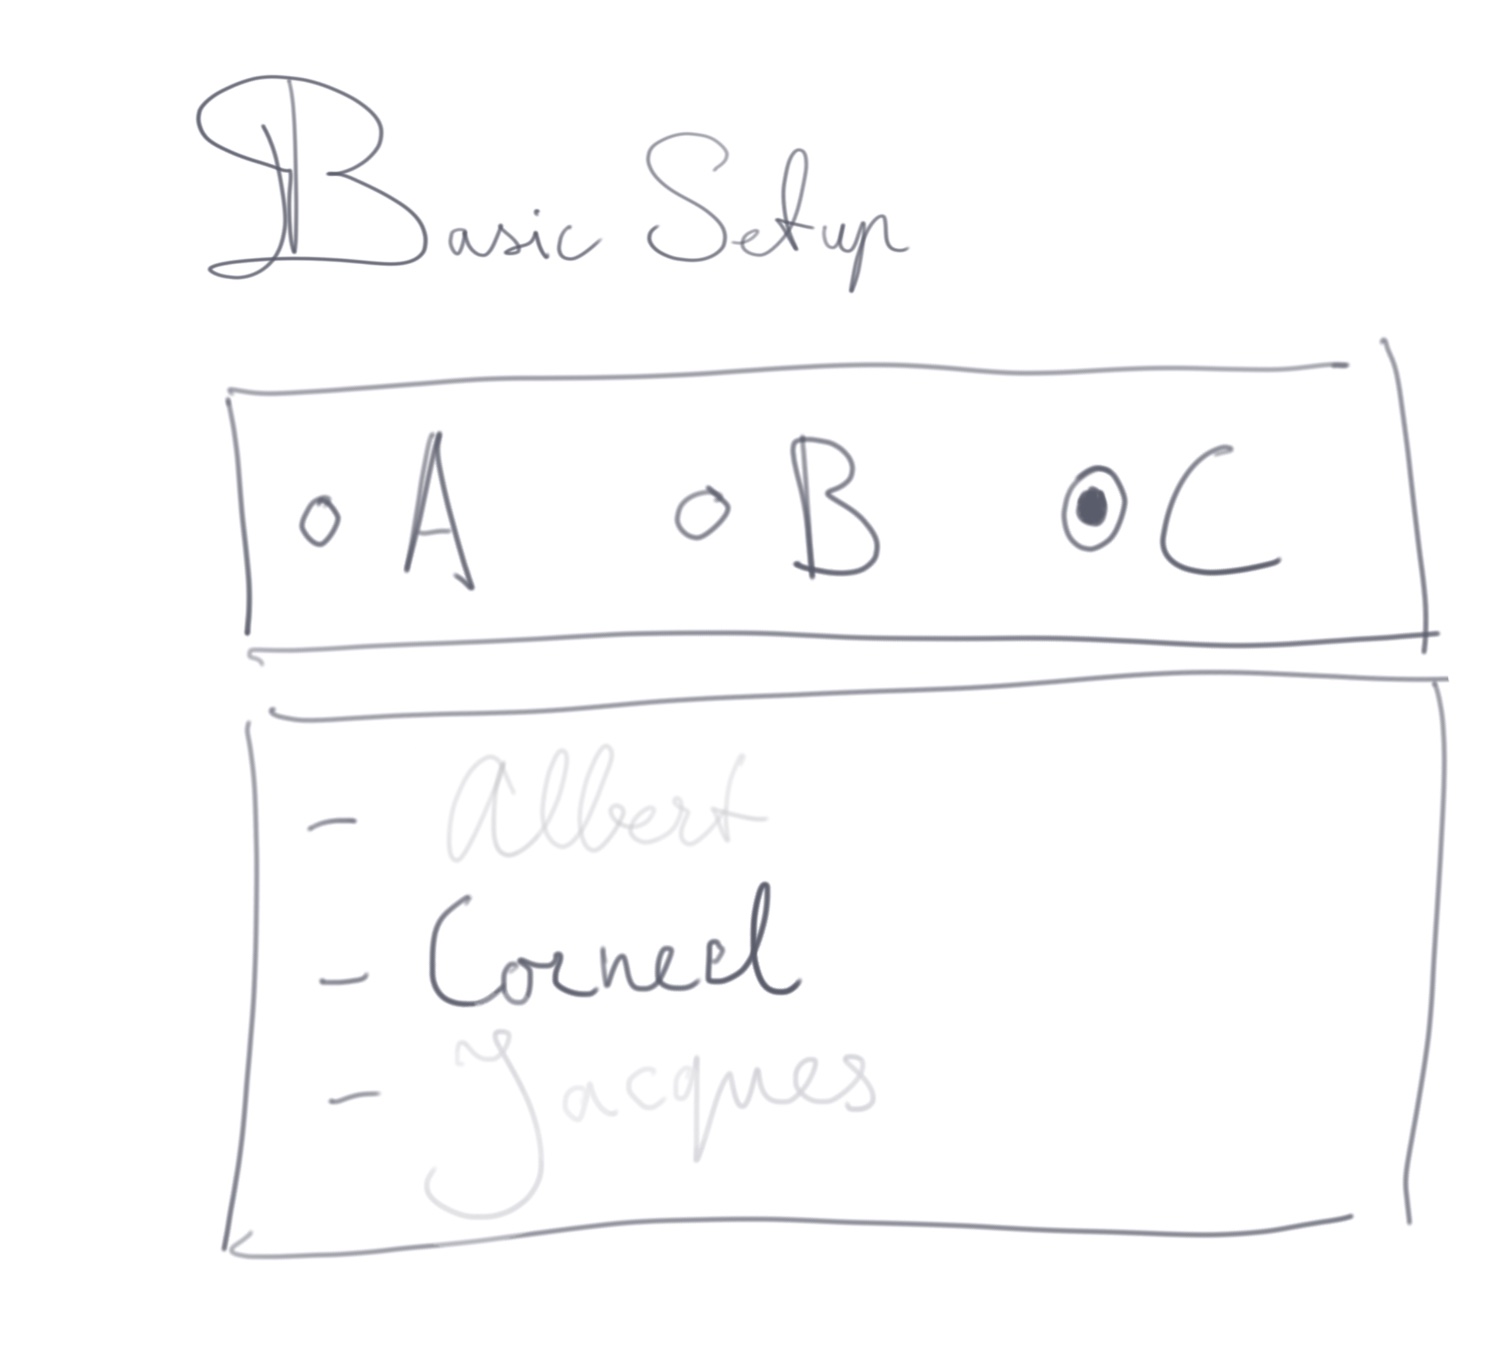 Basic Setup
A B C
- Albert
- Corneel
- Jacques